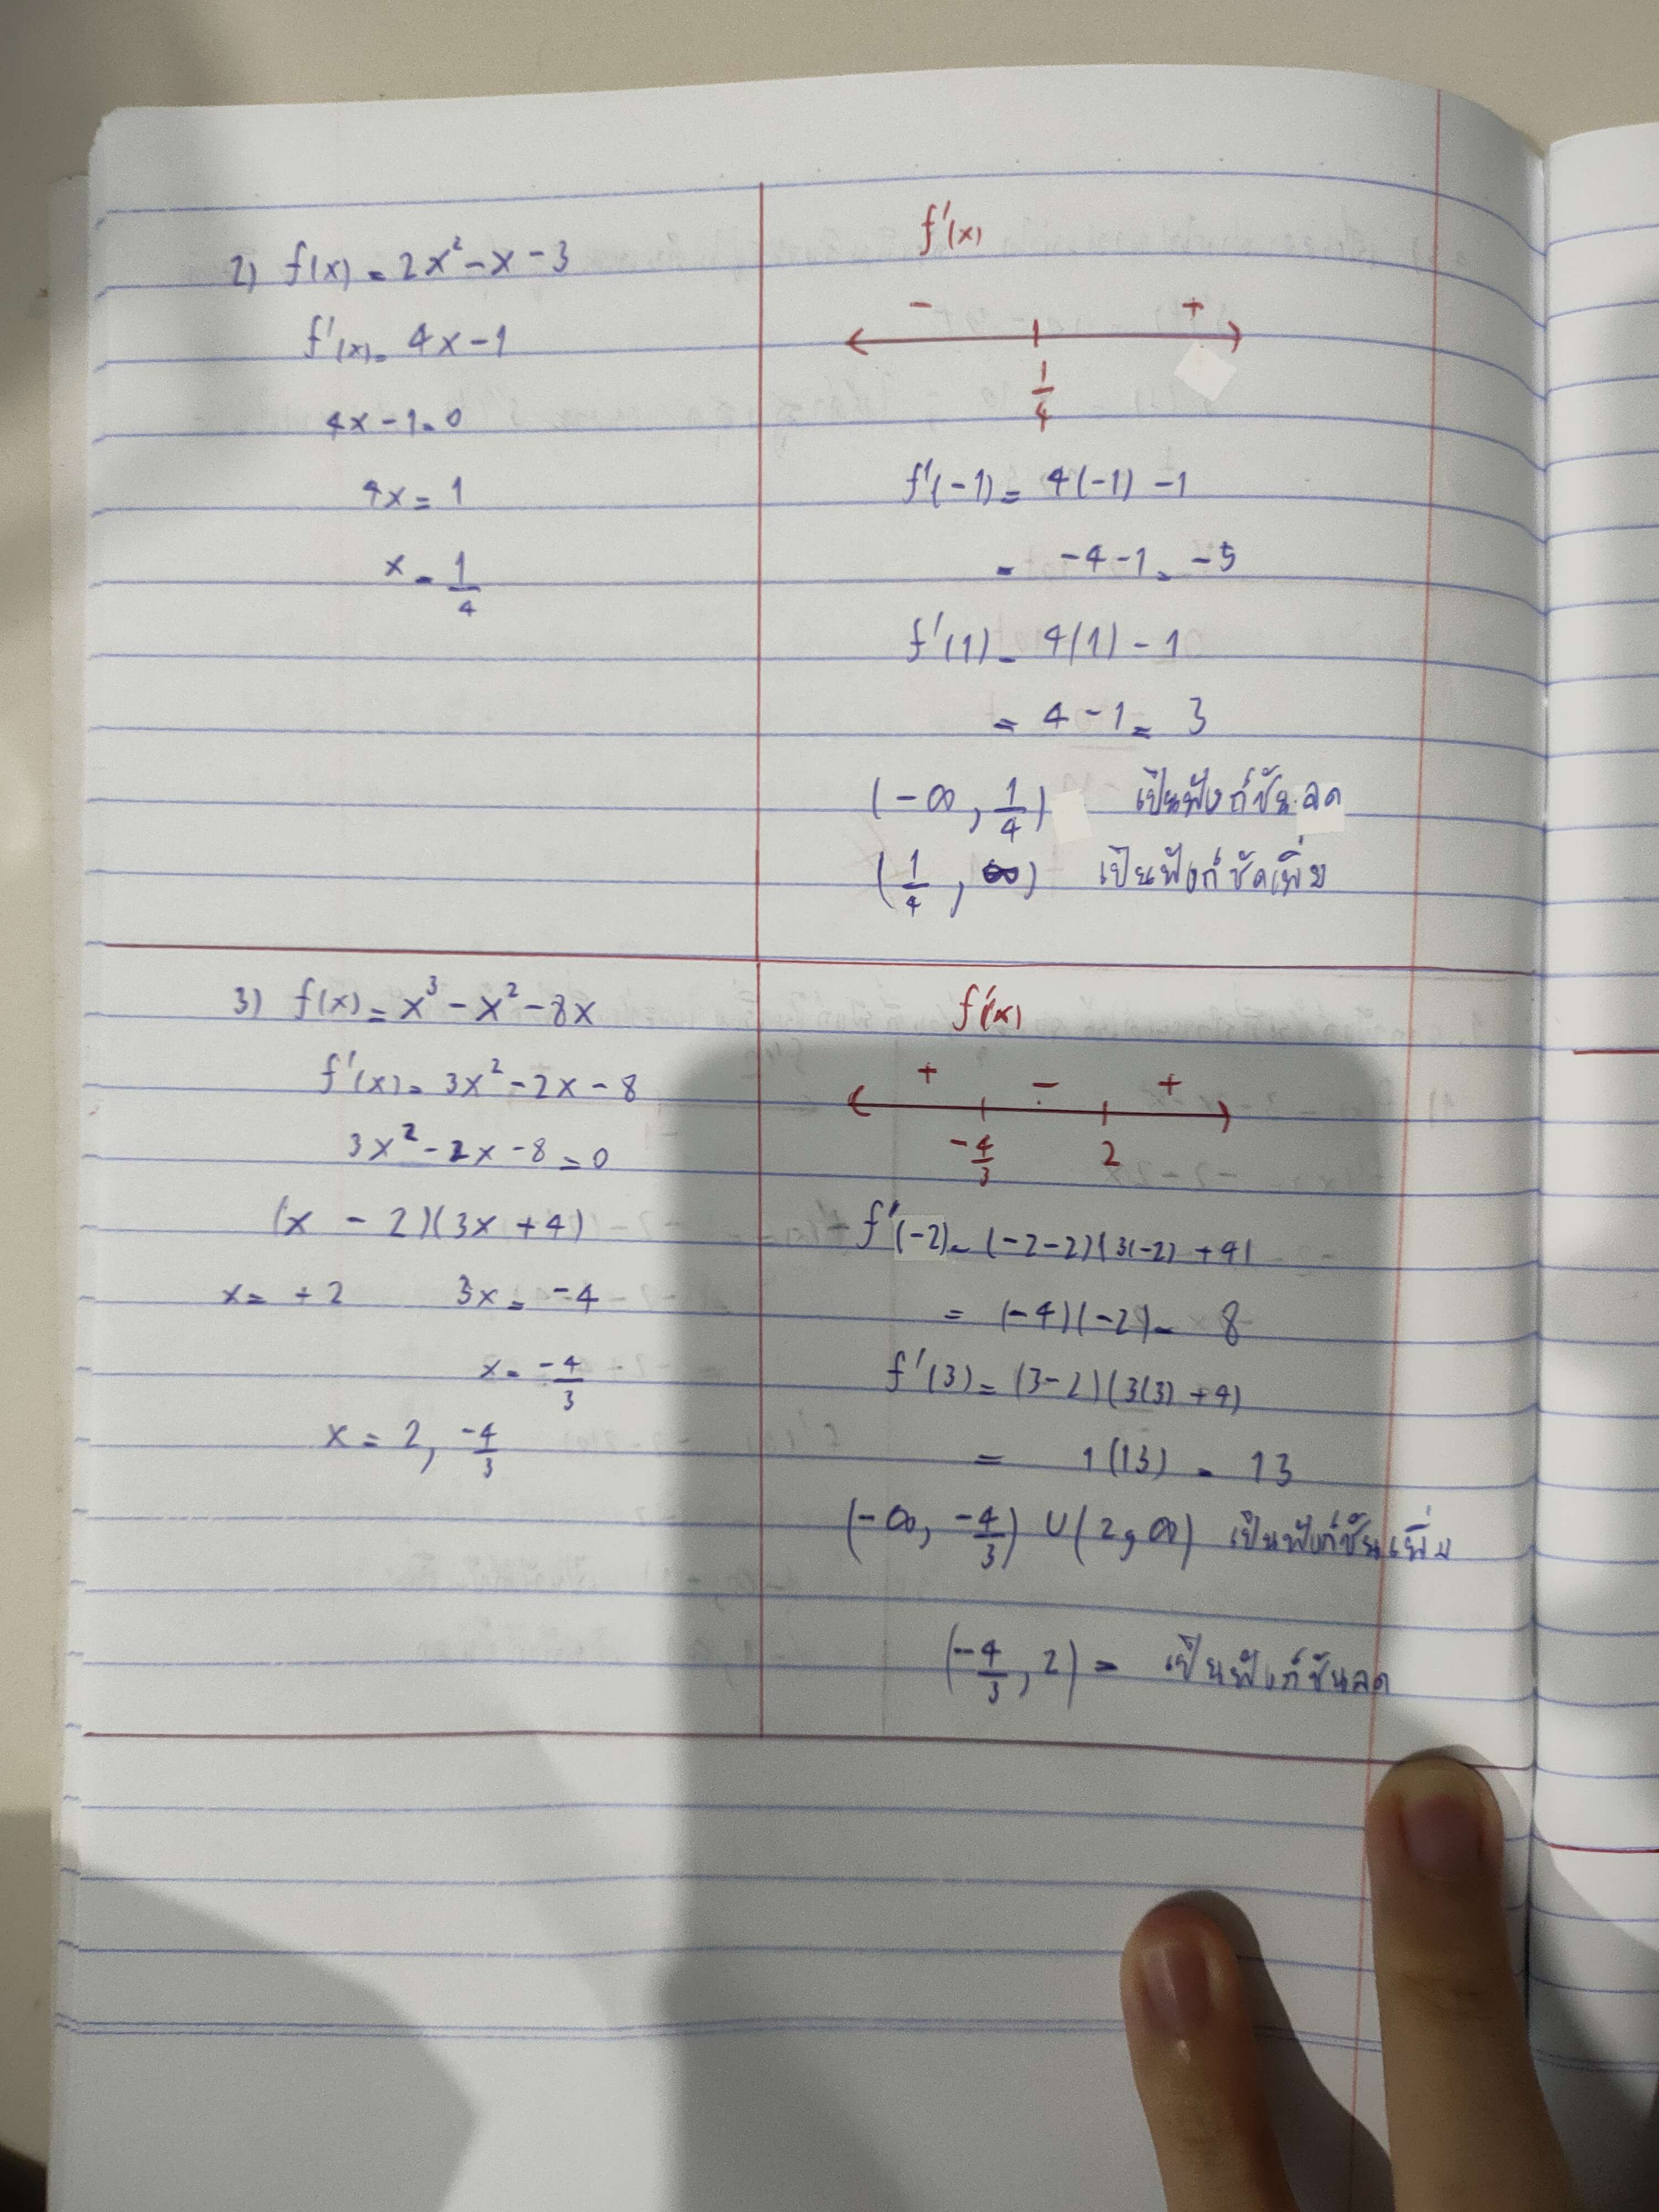 2) f(x) = 2x² - x - 3
f'(x) = 4x - 1
4x - 1 = 0
4x = 1
x = 1/4
f'(x)
- +
1/4
f'(-1) = 4(-1) - 1
= -4 - 1 = -5
f'(1) = 4(1) - 1
= 4 - 1 = 3
(-∞, 1/4) เป็นฟังก์ชันลด
(1/4, ∞) เป็นฟังก์ชัดเพิ่ม
3) f(x) = x³ - x² - 8x
f'(x) = 3x² - 2x - 8
3x² - 2x - 8 = 0
(x - 2)(3x + 4)
x = +2 3x = -4
x = -4/3
x = 2, -4/3
f'(x)
+ - +
-4/3 2
f'(-2) = (-2-2)(3(-2) + 4)
= (-4)(-2) = 8
f'(3) = (3-2)(3(3) + 4)
= 1(13) = 13
(-∞, -4/3) ∪ (2, ∞) เป็นฟังก์ชันเพิ่ม
(-4/3, 2) = เป็นฟังก์ชันลด